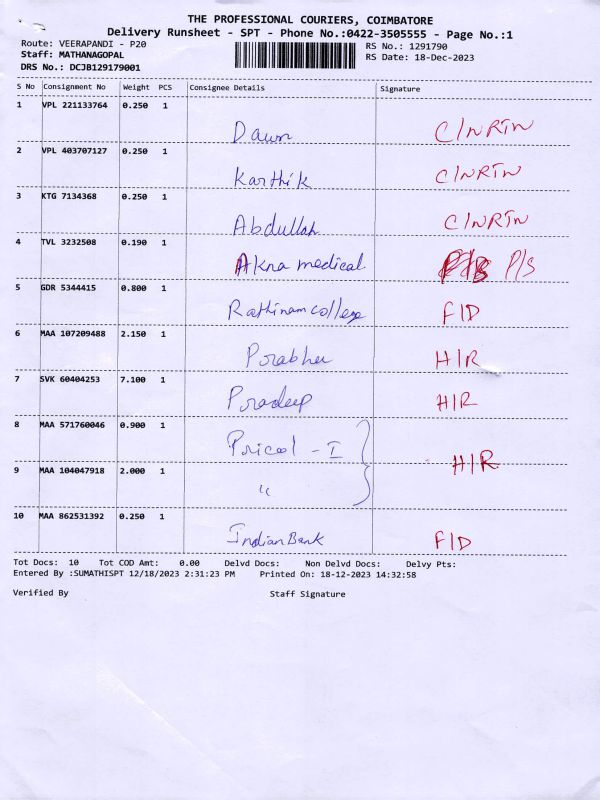 THE PROFESSIONAL COURIERS, COIMBATORE
Delivery Runsheet - SPT - Phone No.:0422-3505555 - Page No.:1
Route: VEERAPANDI - P20 RS No.: 1291790
Staff: MATHANAGOPAL RS Date: 18-Dec-2023
DRS No.: DCJB129179001
S No Consignment No Weight PCS Consignee Details Signature
1 VPL 221133764 0.250 1
Dawn C/NRTN
2 VPL 403707127 0.250 1
Karthik C/NRTN
3 KTG 7134368 0.250 1
Abdullah C/NRTN
4 TVL 3232508 0.190 1
Akna medical P/S
5 GDR 5344415 0.800 1
Rathinam college F/D
6 MAA 107209488 2.150 1
Prabhu H/R
7 SVK 60404253 7.100 1
Pradeep H/R
8 MAA 571760046 0.900 1
Pricol - I
H/R
9 MAA 104047918 2.000 1
"
10 MAA 862531392 0.250 1
Indian Bank F/D
Tot Docs: 10 Tot COD Amt: 0.00 Delvd Docs: Non Delvd Docs: Delvy Pts:
Entered By :SUMATHISPT 12/18/2023 2:31:23 PM Printed On: 18-12-2023 14:32:58
Verified By Staff Signature